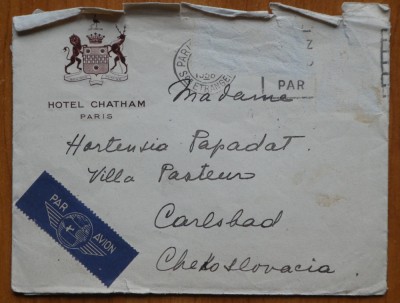 HOTEL CHATHAM
PARIS
PAR
Madame
Hortensia Papadat.
Villa Pasteur
Carlsbad
Chekoslovacia.
PAR AVION